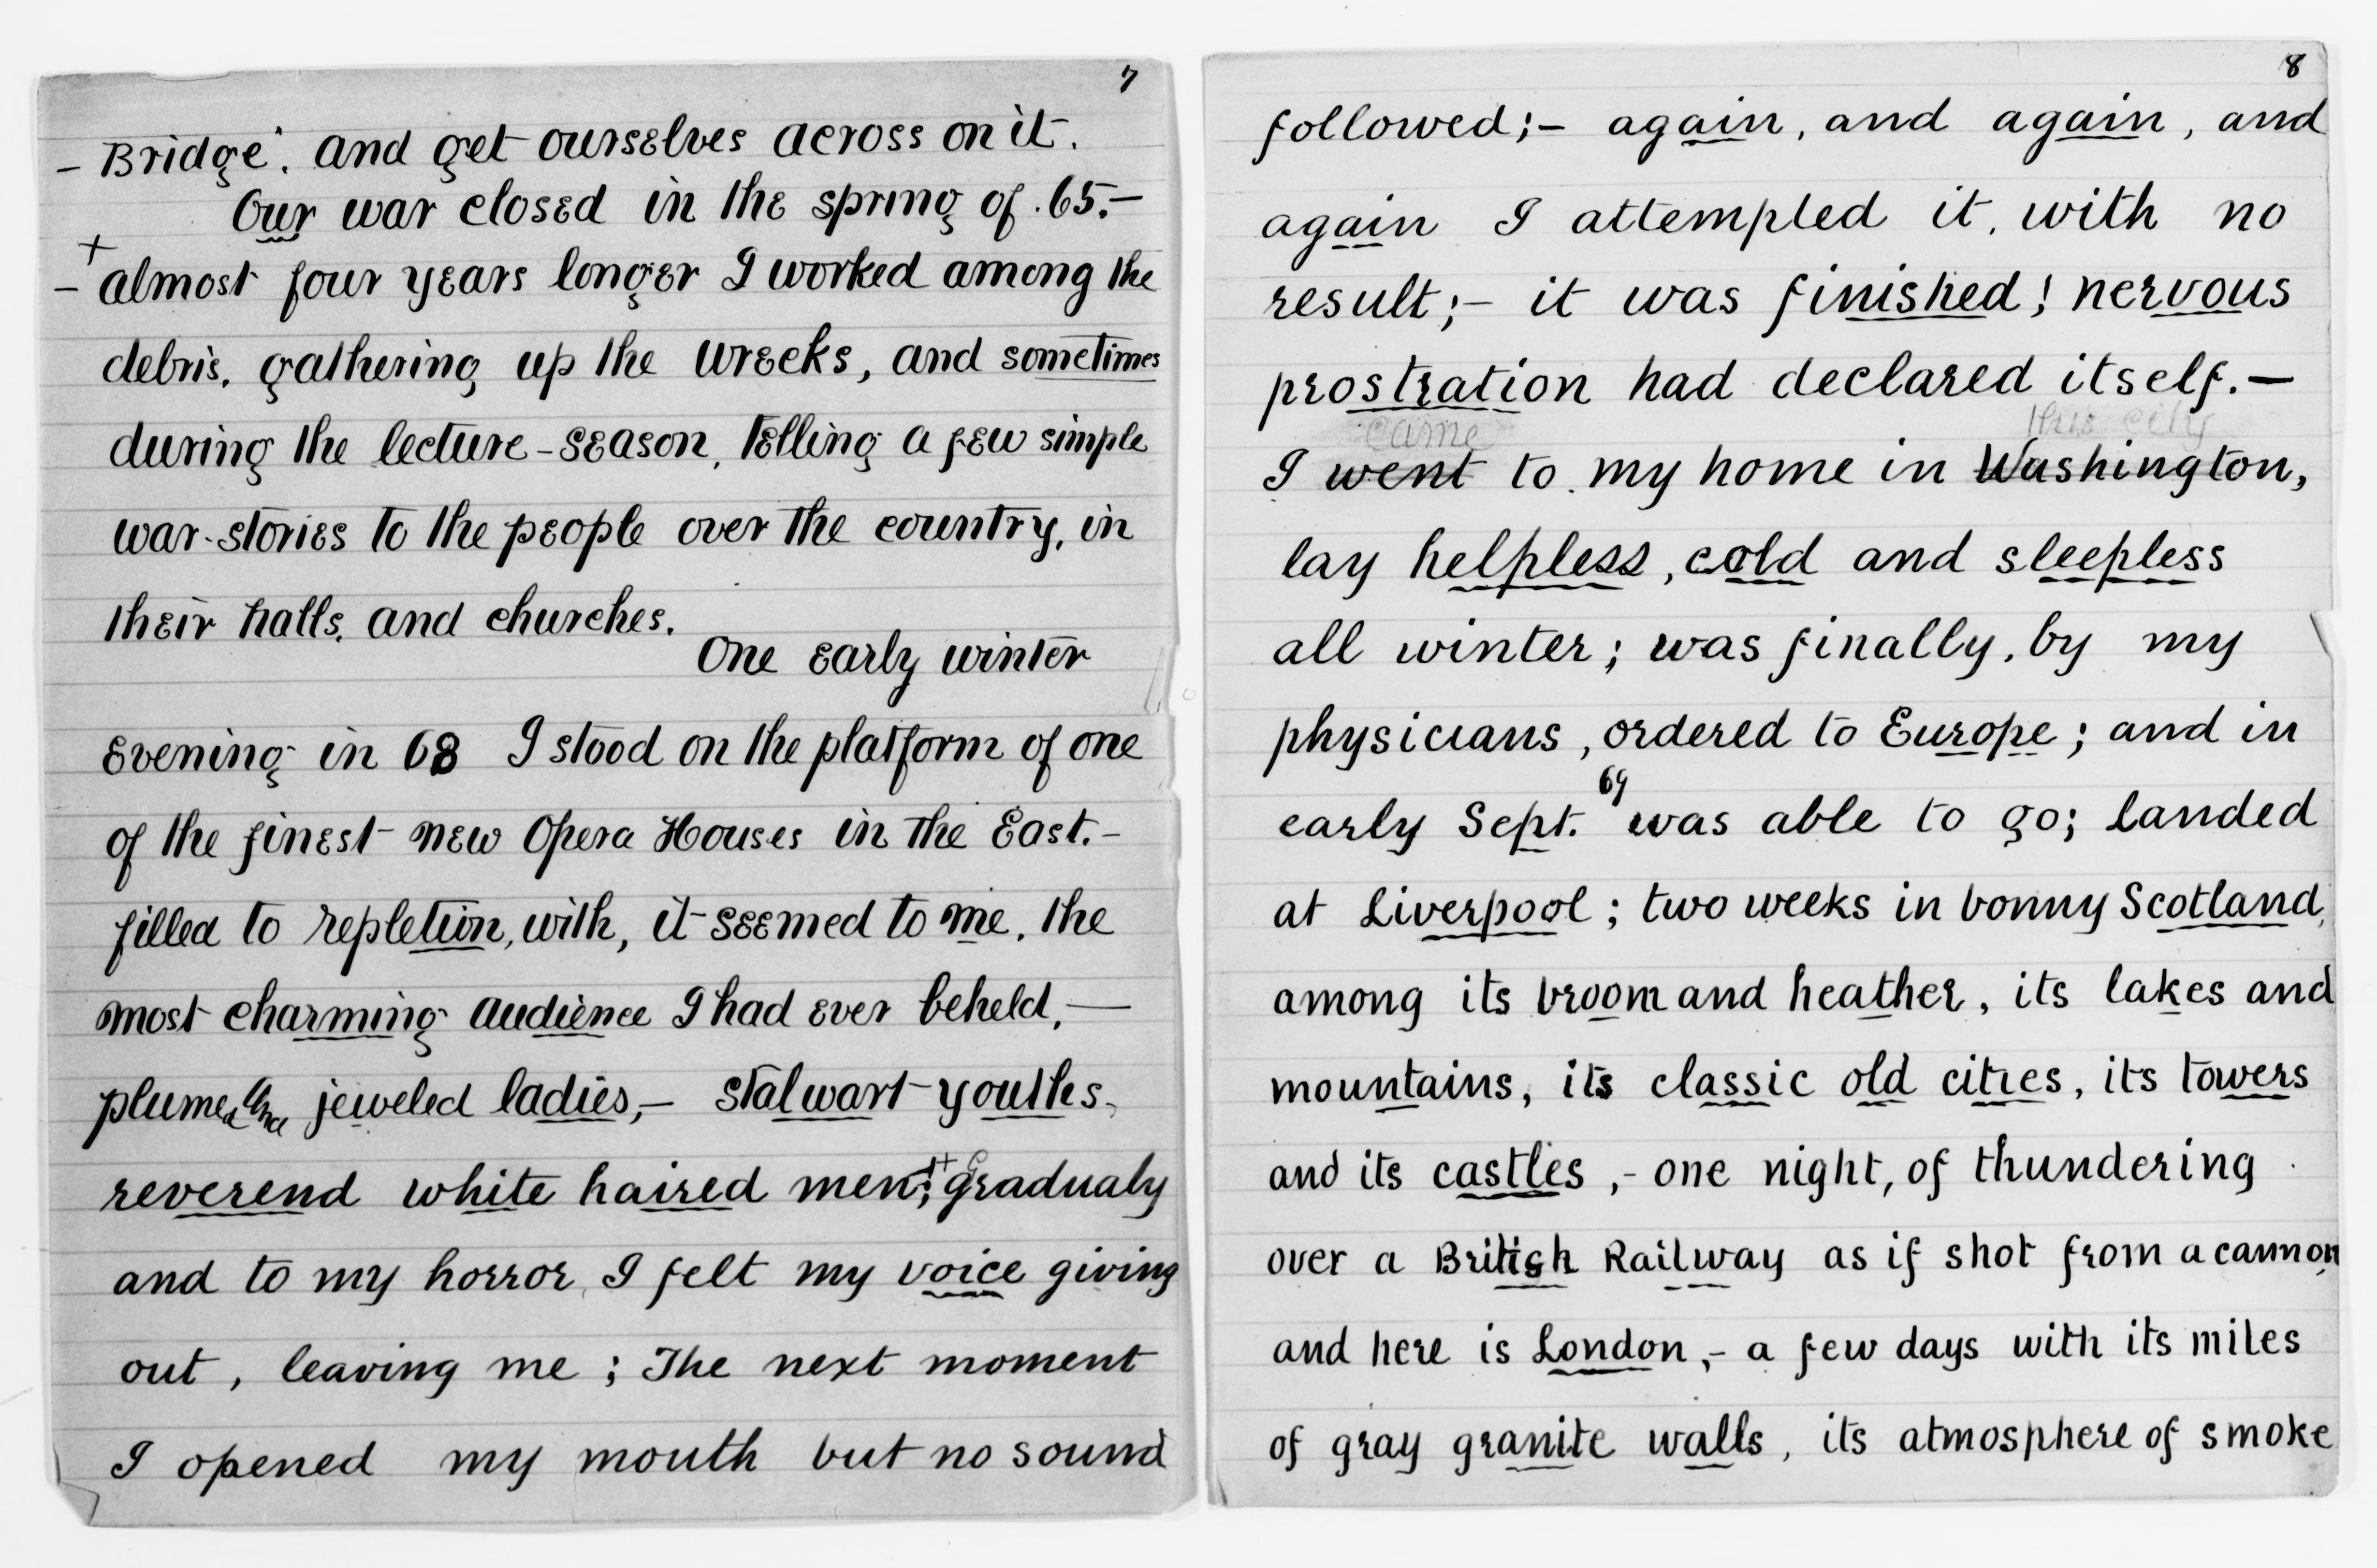 7
- Bridge'. and get ourselves across on it.
Our war closed in the spring of .65.-
+
- almost four years longer I worked among the
debris, gathering up the wrecks, and sometimes
during the lecture-season, telling a few simple
war-stories to the people over the country, in
their halls, and churches.
One early winter
evening in 68 I stood on the platform of one
of the finest new Opera Houses in the East.-
filled to repletion, with, it seemed to me, the
most charming audience I had ever beheld,—
plumed and jeweled ladies,- stalwart youths-
reverend white haired men; ++ gradualy
and to my horror, I felt my voice giving
out, leaving me; The next moment
I opened my mouth but no sound
8
followed;- again, and again, and
again I attempted it, with no
result;- it was finished! nervous
prostration had declared itself.—
came this city
I went to my home in Washington,
lay helpless, cold and sleepless
all winter; was finally, by my
physicians, ordered to Europe; and in
69
early Sept. was able to go; landed
at Liverpool; two weeks in bonny Scotland,
among its broom and heather, its lakes and
mountains, its classic old cities, its towers
and its castles,- one night, of thundering
over a British Railway as if shot from a cannon
and here is London,- a few days with its miles
of gray granite walls, its atmosphere of smoke